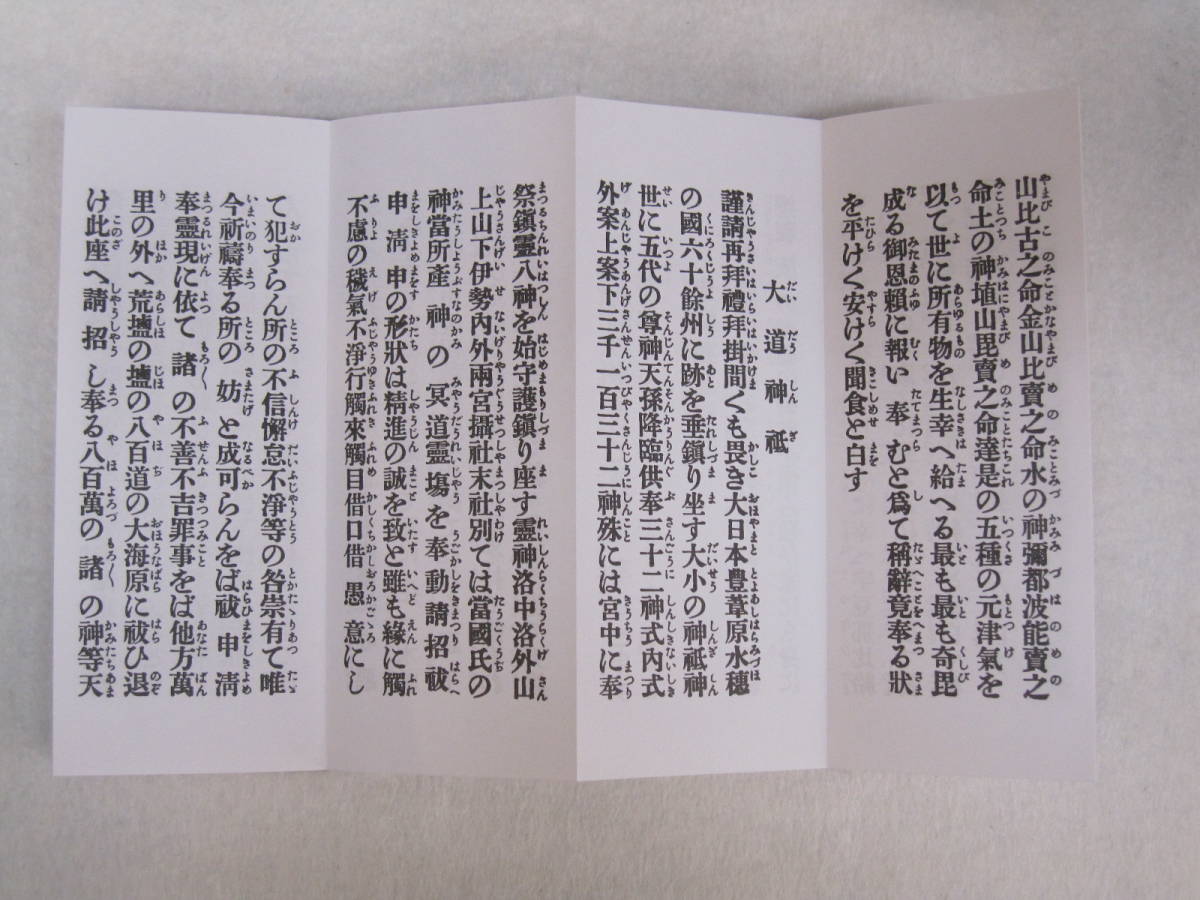 山比古之命金山比賣之命水の神彌都波能賣之
命土の神埴山毘賣之命達是の五種の元津氣を
以て世に所有物を生幸へ給へる最も最も奇毘
成る御恩頼に報い奉むと爲て稱辭竟奉る狀
を平けく安けく聞食と白す
大道神祗
謹請再拜禮拜掛間くも畏き大日本豊葦原水穗
の國六十餘州に跡を垂鎮り坐す大小の神祗神
世に五代の尊神天孫降臨供奉三十二神式內式
外案上案下三千一百三十二神殊には宮中に奉
祭鎮靈八神を始守護鎮り座す靈神洛中洛外山
上山下伊勢內外兩宮攝社末社別ては當國氏の
神當所產神の冥道靈塲を奉動請招祓
申淸申の形狀は精進の誠を致と雖も緣に觸
不慮の穢氣不淨行觸來觸目借口借愚意にし
て犯すらん所の不信懈怠不淨等の咎祟有て唯
今祈禱奉る所の妨と成可らんをば祓申淸
奉靈現に依て諸の不善不吉罪事をば他方萬
里の外へ荒塩の塩の八百道の大海原に祓ひ退
け此座へ請招し奉る八百萬の諸の神等天